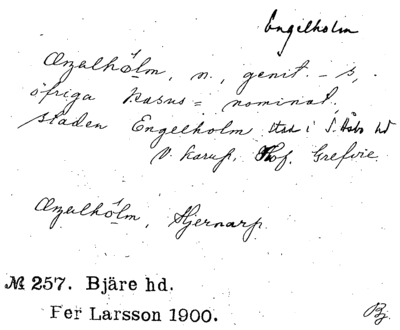 Engelholm
Ænalhólm, n., genit -s,
öfriga kasus = nominat,
staden Engelholm stad i S. Åsbo hd
V. Karup, Grefvie
Ænalhólm, Hjernarp
№ 257. Bjäre hd.
Fer Larsson 1900.
Bj.